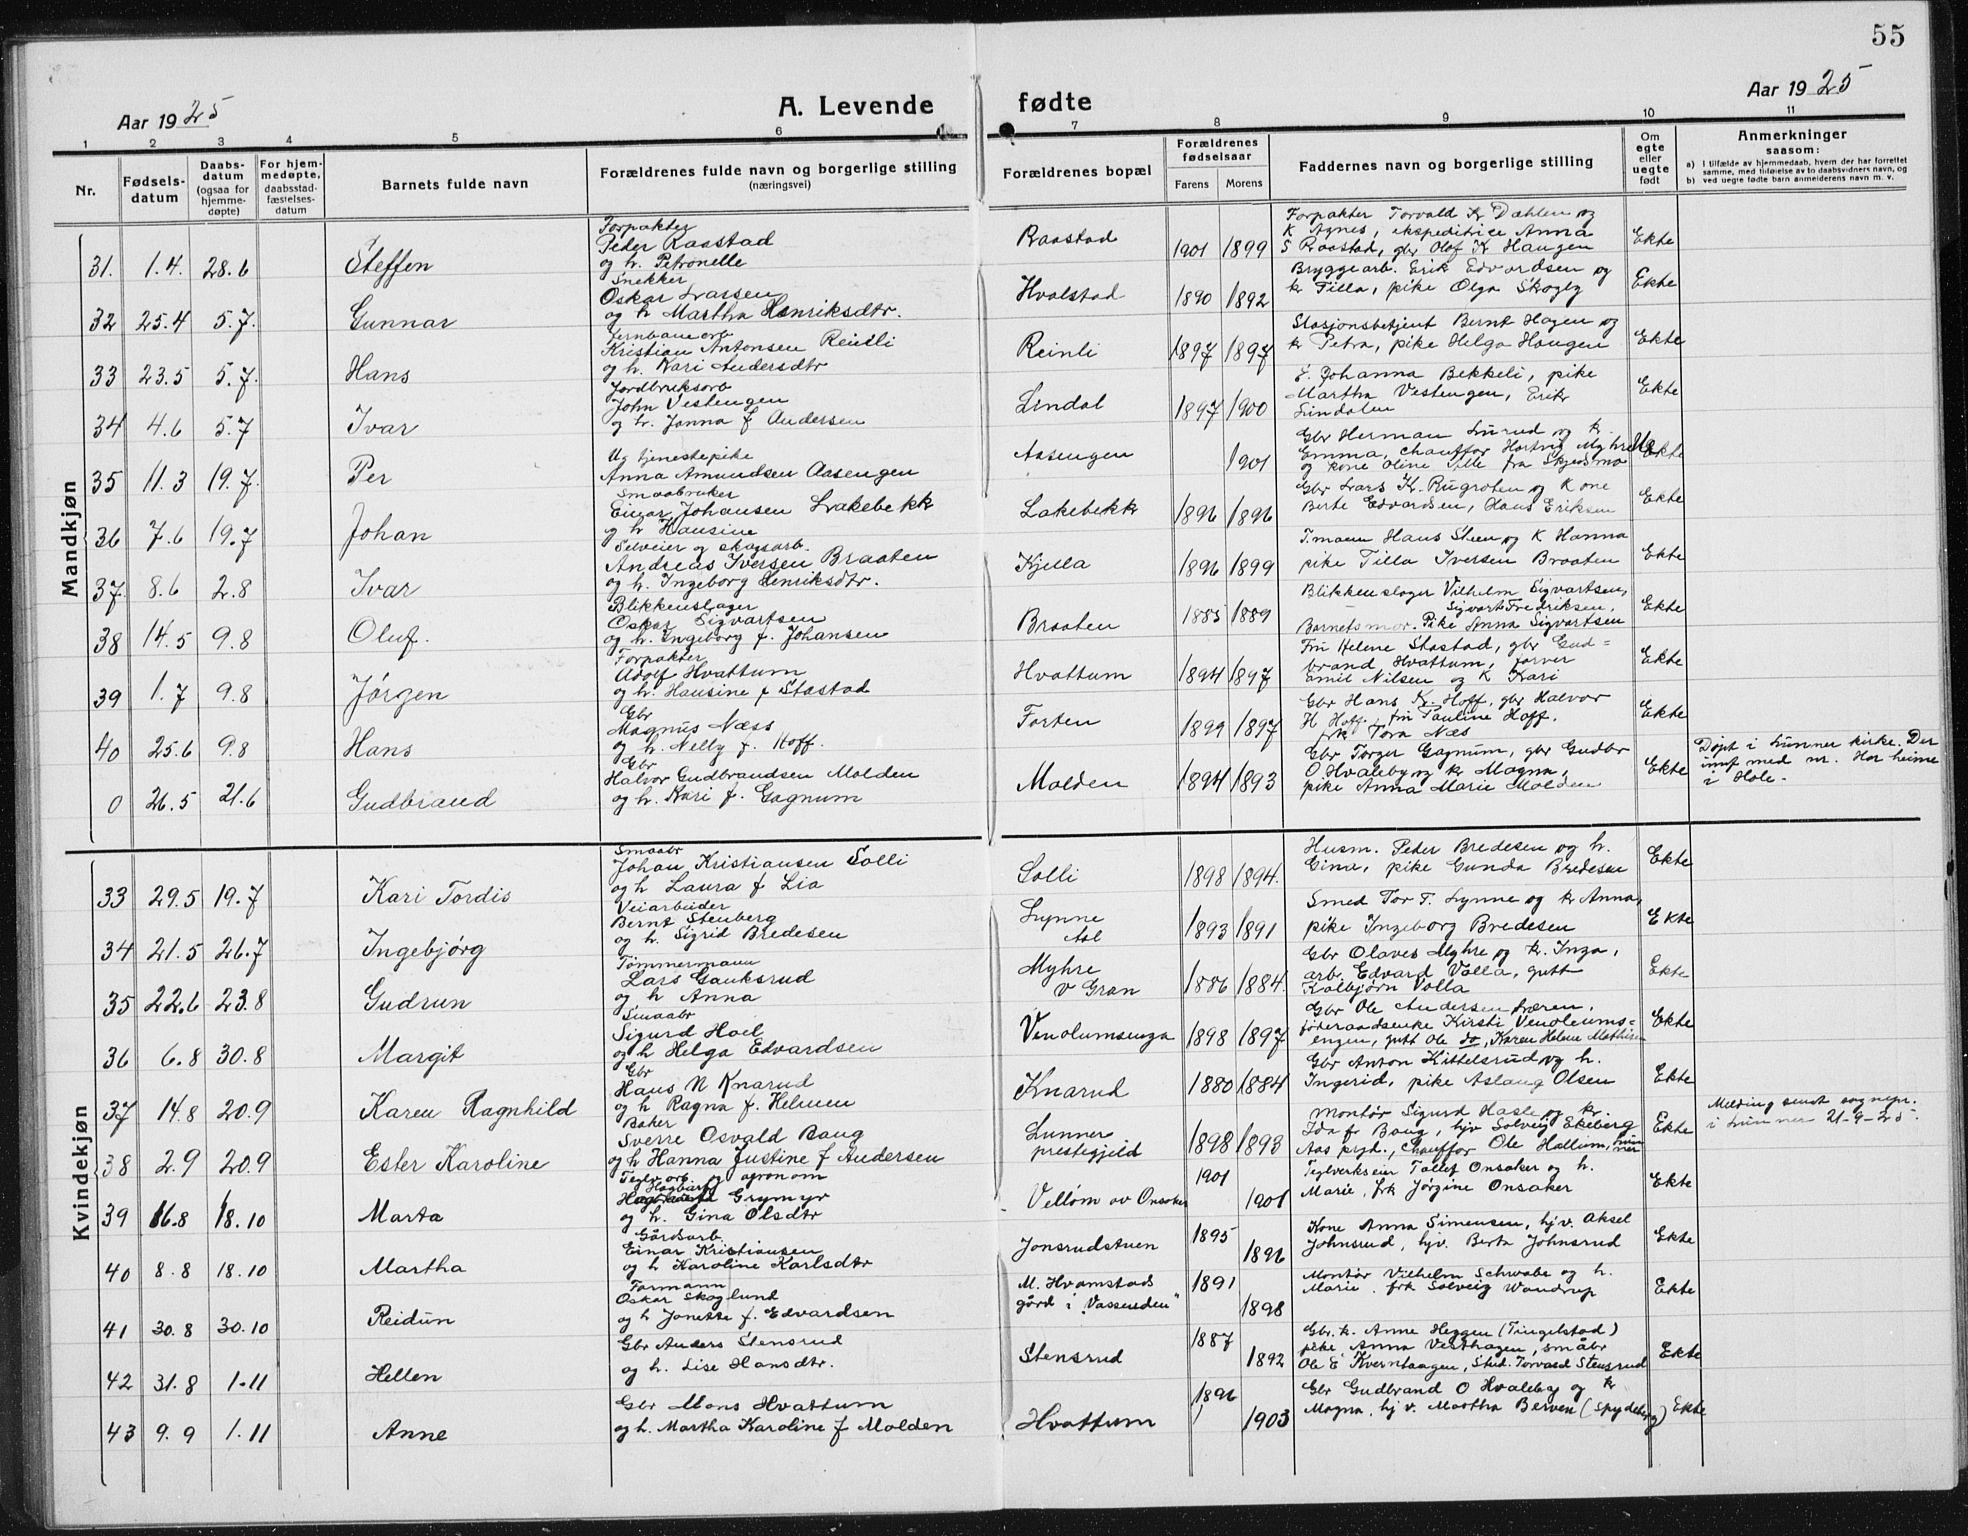 55
Aar 1925
A. Levende fødte
Aar 1925
1 2 3 4 5 6 7 8 9 10 11
Nr.
Fødsels-
datum
Daabs-
datum
(ogsaa for
hjemme-
døpte)
For hjem-
medøpte,
daabsstad-
fæstelses-
datum
Barnets fulde navn
Forældrenes fulde navn og borgerlige stilling
(næringsvei)
Forældrenes bopæl
Forældrenes
fødselsaar
Farens Morens
Faddernes navn og borgerlige stilling
Om
egte
eller
uegte
født
Anmerkninger
saasom:
a) I tilfælde av hjemmedaab, hvem der har forrettet
samme, med tilføielse av to daabsvidners navn, og
b) ved uegte fødte barn anmelderens navn m. v.
Mandkjøn
31. 1.4. 28.6 Steffen
Forpakter
Peder Raastad
og h. Petronelle
Raastad 1901 1899
Forpakter Torvald Kr Dæhlen og
K Agnes, ekspeditrice Anna
S Raastad, gbr Olof K Haugen
Ekte
32 25.4 5.7. Gunnar
Snekker
Oskar Larsen
og h Martha Henriksdtr.
Hvalstad 1890 1892
Bryggearb. Erik Edvardsen og
kr Tilla, pike Olga Skogly
Ekte
33 23.5 5.7. Hans
Jernbanearb
Kristian Antonsen Reinli
og h. Kari Andersdtr
Reinli 1897 1897
Stasjonsbetjent Bernt Hagen og
kr Petra, pike Helga Haugen
Ekte
34 4.6 5.7 Ivar
Jordbruksarb
John Vestengen
og h. Janna f Andersen
Lindal 1897 1900
E. Johanna Bekkeli, pike
Martha Vestengen, Erik
Lindalen
Ekte
35 11.3 19.7. Per
Ug tjenestepike
Anna Amundsen Aasengen
Aasengen 1901
Gbr Herman Lurud og k.
Emma, chauffør Hartvig Myhre
og kone Oline Tille fra Skjedsmo
Uekte
36 7.6 19.7 Johan
Smaabruker
Einar Johansen Lakebekk
og h Hansine
Lakebekk 1896 1896
Gbr Lars K. Rugroten og Kone
Berte Edvardsen, Hans Eriksen
Ekte
37. 8.6 2.8 Ivar
Selveier og skogsarb.
Andreas Iversen Braaten
og h. Ingeborg Henriksdtr.
Kjella 1896 1899
T.mann Hans Steen og K Hanna
pike Tilla Iversen Braaten
Ekte
38 14.5 9.8 Oluf.
Blikkenslager
Oskar Sigvartsen
og h. Ingeborg f. Johansen
Braaten 1885 1889
Blikkenslager Vilhelm Sigvartsen,
Sigvart Fredriksen,
Barnets mor. Pike Anna Sigvartsen
Ekte
39 1.7 9.8 Jørgen
Forpakter
Adolf Hvattum
og h. Hansine f Stastad
Hvattum 1894 1897
Fru Helene Stastad, gbr Gud=
brand Hvattum, farver
Emil Nilsen og K Kari
Ekte
40 25.6 9.8 Hans
Gbr
Magnus Næss
og h. Nelly f. Hoff.
Forten 1899 1897
Gbr Hans K. Hoff, gbr Halvor
H Hoff. fru Pauline Hoff.
frk Tora Næs
Ekte
0 26.5 21.6 Gudbrand
Gbr
Halvor Gudbrandsen Molden
og h. Kari f. Gagnum
Molden 1894 1893
Gbr Torger Gagnum, gbr Gudbr
O Hvaleby og kr Magna,
pike Anna Marie Molden
Ekte
Døpt i Lunner kirke. Der
innf med nr. Hør heime
i Hole.
Kvindekjøn
33 29.5 19.7 Kari Tordis
Smaabr
Johan Kristiansen Solli
og h Laura f Lia
Solli 1898 1894.
Husm. Peter Bredesen og h.
Gina, pike Gunda Bredesen
Ekte
34 21.5 26.7 Ingebjørg
Veiarbeider
Bernt Stenberg
og h. Sigrid Bredesen
Lynne
Aal
1893 1891
Smed Tor T. Lynne og kr Anna,
pike Ingeborg Bredesen
Ekte
35 22.6 23.8 Gudrun
Tømmermann
Lars Gauksrud
og h Anna
Myhre
V Gran
1886 1884.
Gbr Olaves Myhre og k. Inga,
arb. Edvard Volla, gutt
Kolbjørn Volla
Ekte
36 6.8 30.8 Margit
Smaabr
Sigurd Hoel
og h Helga Edvardsen
Venolumsenga 1898 1897
Gbr Ole Andersen Hæren,
føderaadsenke Kirsti Venoleums=
engen, gutt Ole do, Karen Helene Mathisen
Ekte
37 14.8 20.9 Karen Ragnhild
Gbr
Hans N Knarud
og h Ragna f. Helmen
Knarud 1880 1884
Gbr Anton Kittelsrud og h.
Ingerid, pike Aslaug Olsen
Ekte
38 2.9 20.9 Ester Karoline
Baker
Sverre Osvald Baug
og h Hanna Justine f Andersen
Lunner
prestegjeld
1898 1893
Montør Sigurd Hasle og kr.
Ida f Baug, hjv Solveig Ekeberg
Aas prgd., Chauffør Ole Hallum, Lunner
Ekte
Melding sendt sognepr.
i Lunner 21-9-25.
39 16.8 18.10 Marta
Teglv. arb. og agronom
Hagbart Grymyr
og h. Gina Olsdtr
Velløm av Onsaker 1901 1901
Teglverkseier Tollef Onsaker og h.
Marie, frk Jørgine Onsaker
Ekte
40 8.8 18.10 Martha
Gårdsarb.
Einar Kristiansen
og h Karoline Karlsdtr
Jonsrudstuen 1895 1896
Kone Anna Simensen, hjv. Aksel
Johnsrud, hjv. Berta Johnsrud
Ekte
41 30.8 30.10 Reidun
Formann
Oskar Skoglund
og h Janette f. Edvardsen
M. Hvamstads
gård i "Vassenden"
1891 1898
Montør Vilhelm Schwabe og h.
Marie, frk Solveig Wandrup
Ekte
42 31.8 1.11 Hellen
Gbr Anders Stensrud
og h. Lise Hansdtr.
Stensrud 1887 1892
Gbr. k. Anne Heggen (Tingelstad)
pike Anna Vesthagen, småbr
Ole E Kvernhaugen, Stud. Torvald Stensrud
Ekte
43 9.9 1.11 Anne
Gbr Mons Hvattum
og h. Martha Karoline f Molden
Hvattum 1896 1903
Gbr Gudbrand O Hvaleby og kr
Magna, hjv. Martha Berven (Spydeberg)
Ekte